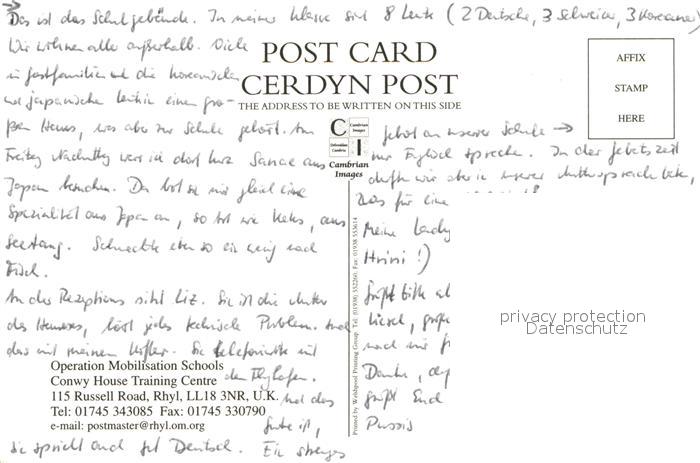 Das ist das Schulgebäude. In meiner Klasse sind 8 Leute (2 Deutsche, 3 Schweizer, 3 Koreaner)
Wir wohnen alle außerhalb. Viele
in Gastfamilien und die koreanischen
und japanische Leute in einem gro-
ßen Haus, was aber zur Schule gehört. Am
Freitag Nachmittag war ich dort kurz Sanae aus
Japan besuchen. Da bot sie mir gleich eine
Spezialität aus Japan an, so Art wie Keks, aus
Seetang. Schmeckte eben so ein wenig nach
Fisch.
An der Rezeption sitzt Liz. Sie ist die Mutter
des Hauses, löst jedes technische Problem. Und
das mit meinem Koffer. Sie telefonierte mit
den Flughafen.
Und das
Gute ist,
sie spricht auch gut Deutsch. Ein strenges
POST CARD
CERDYN POST
THE ADDRESS TO BE WRITTEN ON THIS SIDE
AFFIX
STAMP
HERE
C
Cambrian
Images
I
Cambrian
Images
Gebot an unserer Schule →
nur Englisch sprechen. In der Gebetszeit
durften wir aber in unserer Muttersprache beten,
Das für eine
Meine
Grüßt bitte
Liesel,
noch mir
Danke,
grüßt Euch
Operation Mobilisation Schools
Conwy House Training Centre
115 Russell Road, Rhyl, LL18 3NR, U.K.
Tel: 01745 343085 Fax: 01745 330790
e-mail: postmaster@rhyl.om.org
Printed by Welshpool Printing Group. Tel: (01938) 552260. Fax: 01938 553614
privacy protection
Datenschutz